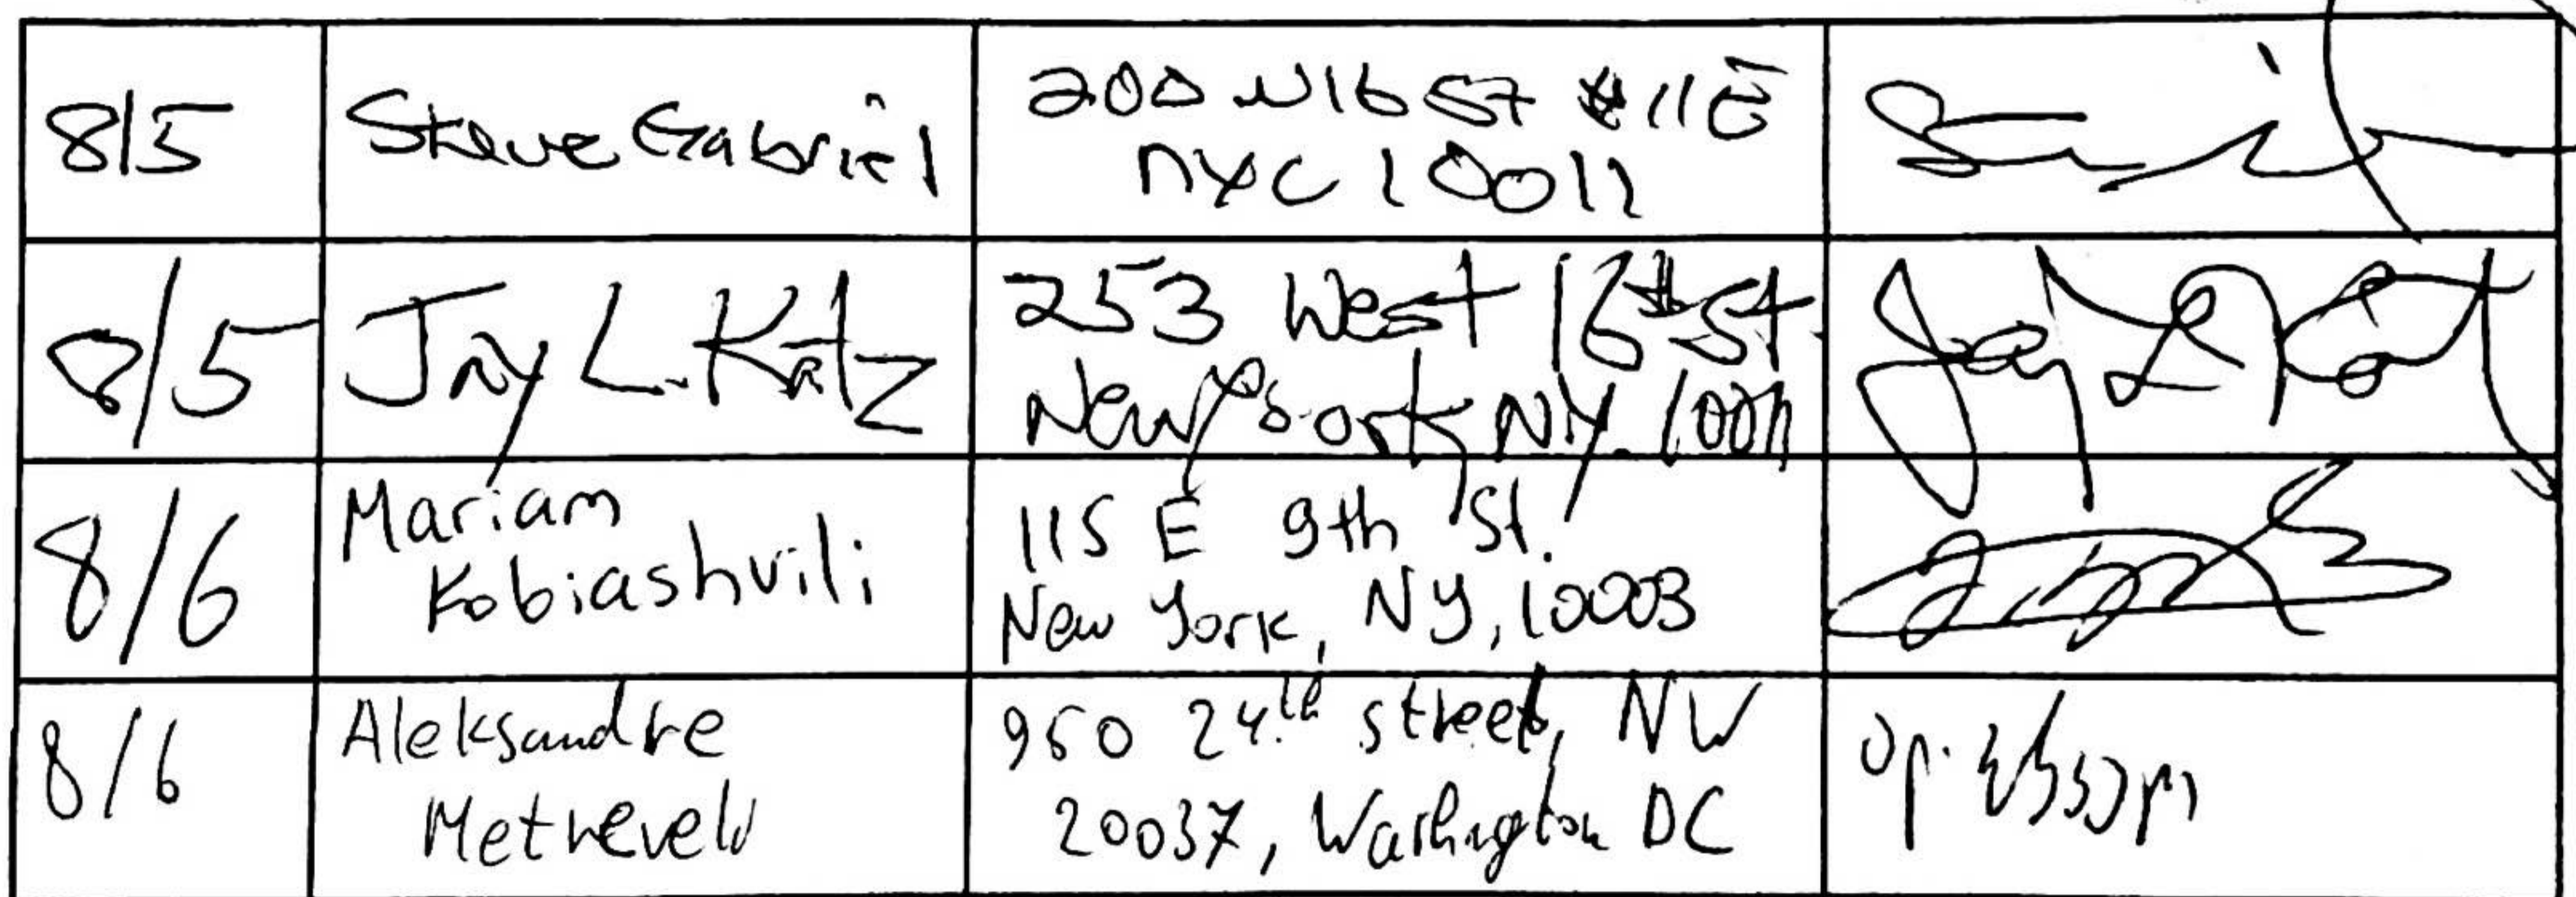 8/5
Steve Gabriel
200 W 16 ST #11E
NYC 10011
8/5
Jay L. Katz
253 West 16th St.
New York NY. 10011
8/6
Mariam
Kobiashvili
115 E 9th St.
New York, NY, 10003
8/6
Aleksandre
Metreveli
950 24th street, NW
20037, Washington DC